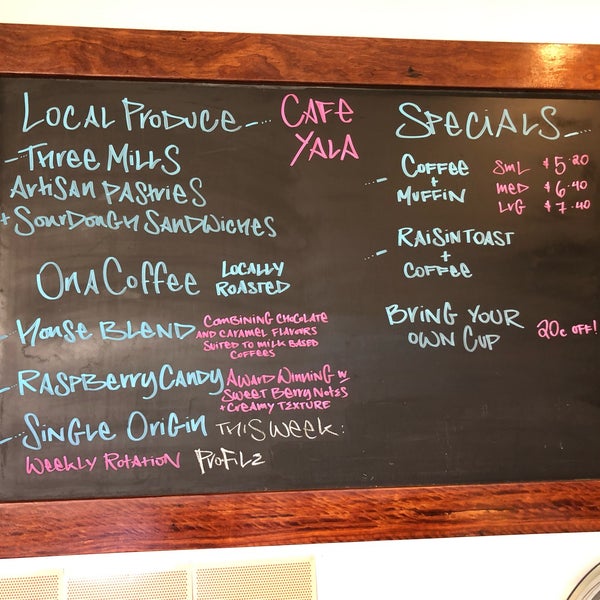 LOCAL PRODUCE -...
CAFE
YALA
- THREE MILLS
ARTISAN PASTRIES
+ SOURDOUGH SANDWICHES
ONA COFFEE
LOCALLY
ROASTED
HOUSE BLEND
COMBINING CHOCOLATE
AND CARAMEL FLAVOURS
SUITED TO MILK BASED
COFFEES
RASPBERRY CANDY
AWARD WINNING W
SWEET BERRY NOTES
+ CREAMY TEXTURE
SINGLE ORIGIN THIS WEEK:
WEEKLY ROTATION PROFILE
SPECIALS -...
COFFEE
+
MUFFIN
SML $5.20
MED $6.40
LRG $7.40
RAISIN TOAST
+
COFFEE
BRING YOUR
OWN CUP
20c OFF!